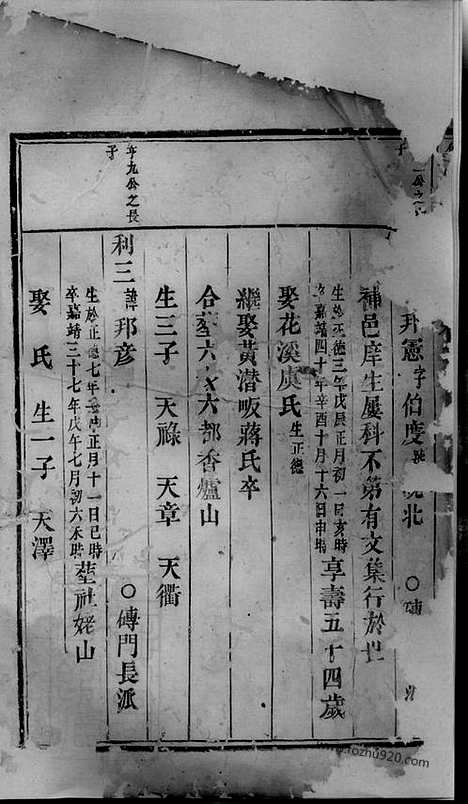 憲字伯度號 北
補邑庠生屢科不第有文集行於世
生於正德三年戊辰正月初一日亥時
卒嘉靖四十年辛酉十月十六日申時
享壽五十四歲
娶花溪虞氏生正德
繼娶黃潜畈蔣氏卒
合墓六 六都香爐山
生三子 天祿 天章 天衢
九公之長
子
利三諱邦彥 ○傳門長派
生於正德七年 正月十一日巳時
卒嘉靖三十七年戊午七月初六未時
塟社姥山
娶 氏 生一子 天澤
www.rozhu920.com